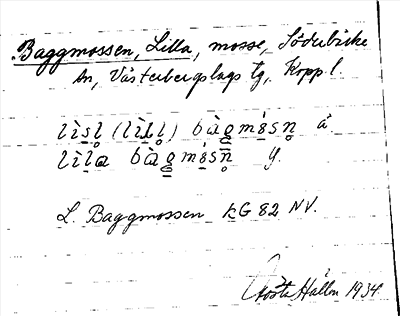 Baggmossen, Lilla, mosse, Söderbärke
sn, Västerbergslags tg, Kopp l.
lìsl̥ (lìɫl̥) bàgmósn̥ ä.
lìla bàgmósn̥ y.
L. Baggmossen kG 82 NV.
Gösta Hallen 1934